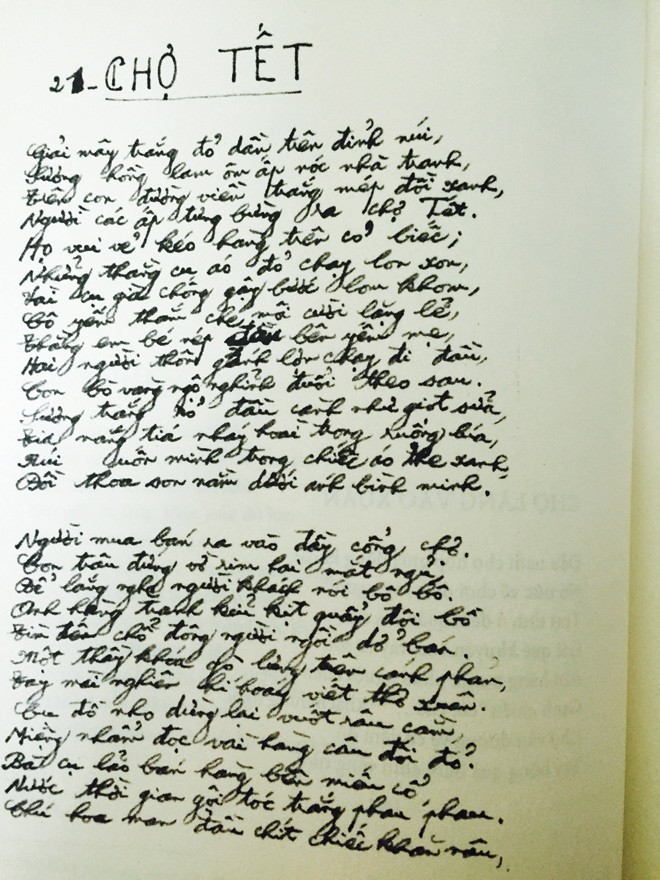 21- CHỢ TẾT
Giải mây trắng đỏ dần trên đỉnh núi,
Sương hồng lam ôm ấp nóc nhà tranh,
Trên con đường viền trắng mép đồi xanh,
Người các ấp tưng bừng ra chợ Tết.
Họ vui vẻ kéo hàng trên cỏ biếc;
Những thằng cu áo đỏ chạy lon xon,
Vài cụ già chống gậy bước lom khom,
Cô yếm thắm che môi cười lặng lẽ,
Thằng em bé nép đầu bên yếm mẹ,
Hai người thôn gánh lợn chạy đi đầu,
Con bò vàng ngộ nghĩnh đuổi theo sau.
Sương trắng rỏ đầu cành như giọt sữa,
Tia nắng tía nháy hoài trong ruộng lúa,
Núi uốn mình trong chiếc áo the xanh,
Đồi thoa son nằm dưới ánh bình minh.
Người mua bán ra vào đầy cổng chợ.
Con trâu đứng vờ rim hai mắt ngủ.
Để lắng nghe người khách nói bô bô.
Anh hàng tranh kĩu kịt quẩy đôi bồ
Tìm đến chỗ đông người ngồi dở bán.
Một thầy khóa gò lưng trên cánh phản,
Tay mài nghiên hí hoáy viết thơ xuân.
Cụ đồ nho dừng lại vuốt râu cằm,
Miệng nhẩm đọc vài hàng câu đối đỏ.
Bà cụ lão bán hàng bên miếu cổ,
Nước thời gian gội tóc trắng phau phau.
Chú hoa man đầu chít chiếc khăn nâu,